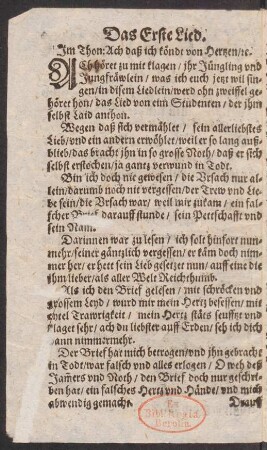 Das Erste Lied.
Im Thon: Ach daß ich köndt von Hertzen/ꝛc.
ACh höret zu mit klagen / jhr Jüngling vnd
Jungfräwlein / was ich euch jetzt wil sin-
gen/in disem Liedlein/werd ohn zweiffel ge-
höret hon/das Lied von eim Studenten / der jhm
selbst Laid anthon.
Wegen daß sich vermählet / sein allerliebstes
Lieb/vnd ein andern erwöhlet/weil er so lang auß-
blieb/das bracht jhn in so grosse Noth/daß er sich
selbst erstochen/ja gantz verwund in Todt.
Bin ich doch nie gewesen / die Vrsach nur al-
lein/darumb noch nit vergessen/der Trew vnd Lie-
be sein/die Vrsach war/ weil mir zukam / ein fal-
scher Brief darauff stunde / sein Pettschafft vnd
sein Nam.
Darinnen war zu lesen / ich solt hinfort nun-
mehr/seiner gäntzlich vergessen/er käm doch nim-
mer her/er hett sein Lieb gesetzet nun/auff eine die
jhm lieber/als aller Welt Reichthumb.
Als ich den Brief gelesen / mit schröcken vnd
grossem Leyd / wurd mir mein Hertz besessen/mit
eytel Trawrigkeit / mein Hertz stäts seufftzt vnd
klaget sehr/ach du liebster auff Erden/seh ich dich
dann nimmermehr.
Der Brief hat mich betrogen/vnd jhn gebracht
in Todt/war falsch vnd alles erlogen / O weh deß
Jamers vnd Noth/ den Brief doch nur geschri-
ben hat/ ein falsches Hertz vnd Hände/vnd mich
abwendig gemacht. Drauff
Ex
Biblioth. Regia
Berolin.